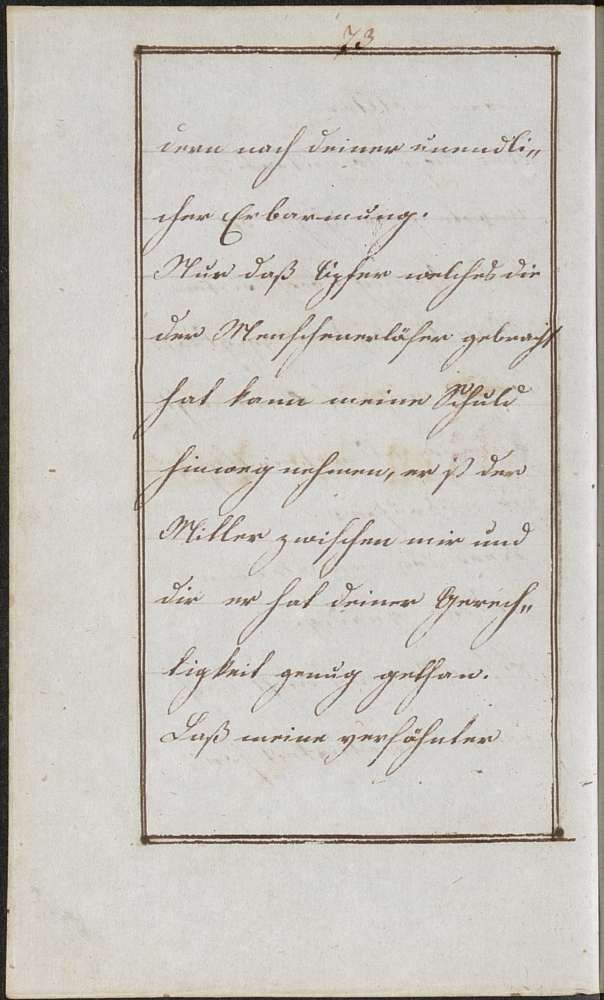 73
dern nach deiner unendli„
cher Erbarmung.
Nur daß Opfer welches die
der Menschenerlöser gebracht
hat kann meine Schuld
hinweg nehmen, er ist der
Mittler zwischen mir und
dir er hat deiner Gerech„
tigkeit genug gethan.
Laß meine versöhnter